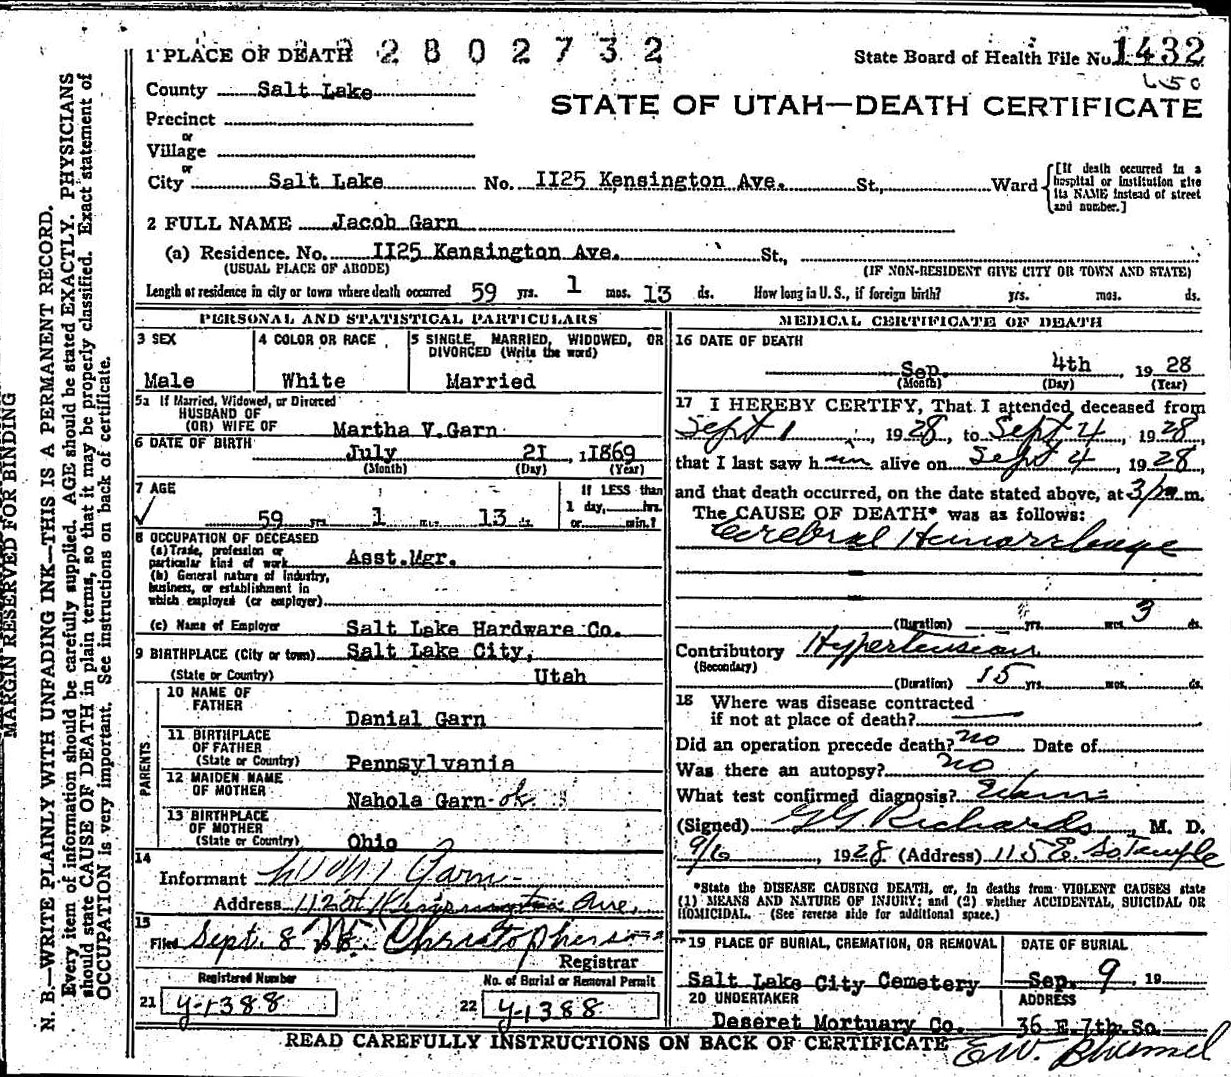 MARGIN RESERVED FOR BINDING
N. B.—WRITE PLAINLY WITH UNFADING INK—THIS IS A PERMANENT RECORD.
Every item of information should be carefully supplied. AGE should be stated EXACTLY. PHYSICIANS
should state CAUSE OF DEATH in plain terms, so that it may be properly classified. Exact statement of
OCCUPATION is very important. See instructions on back of certificate.
1 PLACE OF DEATH 2802732 State Board of Health File No. 1432
650
County Salt Lake
STATE OF UTAH—DEATH CERTIFICATE
Precinct
or
Village
or
City Salt Lake No. II25 Kensington Ave. St., Ward
[If death occurred in a
hospital or institution give
its NAME instead of street
and number.]
2 FULL NAME Jacob Garn
(a) Residence. No. II25 Kensington Ave. St.,
(USUAL PLACE OF ABODE) (IF NON-RESIDENT GIVE CITY OR TOWN AND STATE)
Length of residence in city or town where death occurred 59 yrs. 1 mos. 13 ds. How long in U. S., if foreign birth? yrs. mos. ds.
PERSONAL AND STATISTICAL PARTICULARS
3 SEX
Male
4 COLOR OR RACE
White
5 SINGLE, MARRIED, WIDOWED, OR
DIVORCED (Write the word)
Married
5a If Married, Widowed, or Divorced
HUSBAND OF
(OR) WIFE OF Martha V.Garn
6 DATE OF BIRTH July 2I , 1869
(Month) (Day) (Year)
7 AGE
59 yrs. 1 mos. 13 ds.
If LESS than
1 day, hrs.
or min.?
8 OCCUPATION OF DECEASED
(a) Trade, profession or
particular kind of work Asst.Mgr.
(b) General nature of Industry,
business, or establishment in
which employed (or employer)
(c) Name of Employer Salt Lake Hardware Co.
9 BIRTHPLACE (City or town) Salt Lake City,
(State or Country) Utah
PARENTS
10 NAME OF
FATHER
Danial Garn
11 BIRTHPLACE
OF FATHER
(State or Country) Pennsylvania
12 MAIDEN NAME
OF MOTHER
Nahola Garn-ok
13 BIRTHPLACE
OF MOTHER
(State or Country) Ohio
14
Informant Garn
Address Ave.
15
Filed Sept. 8
Registrar
Registered Number
21 Y-1388
No. of Burial or Removal Permit
22 Y-1388
MEDICAL CERTIFICATE OF DEATH
16 DATE OF DEATH
Sep. 4th 19 28
(Month) (Day) (Year)
17 I HEREBY CERTIFY, That I attended deceased from
Sept 1 , 1928, to Sept 4 , 1928,
that I last saw him alive on Sept 4 , 1928,
and that death occurred, on the date stated above, at m.
The CAUSE OF DEATH* was as follows:
Cerebral Hemorrhage
(Duration) yrs. mos. 3 ds.
Contributory Hypertension
(Secondary)
(Duration) 15 yrs. mos. ds.
18 Where was disease contracted
if not at place of death?
Did an operation precede death? no Date of
Was there an autopsy? no
What test confirmed diagnosis? Exam
(Signed) G G Richards, M. D.
9/6 , 1928 (Address) 115 E. So Temple
*State the DISEASE CAUSING DEATH, or, in deaths from VIOLENT CAUSES state
(1) MEANS AND NATURE OF INJURY; and (2) whether ACCIDENTAL, SUICIDAL OR
HOMICIDAL. (See reverse side for additional space.)
19 PLACE OF BURIAL, CREMATION, OR REMOVAL
Salt Lake City Cemetery
DATE OF BURIAL
Sep. 9 , 19
20 UNDERTAKER
Deseret Mortuary Co.
ADDRESS
36 E.7th So.
READ CAREFULLY INSTRUCTIONS ON BACK OF CERTIFICATE
E.W.